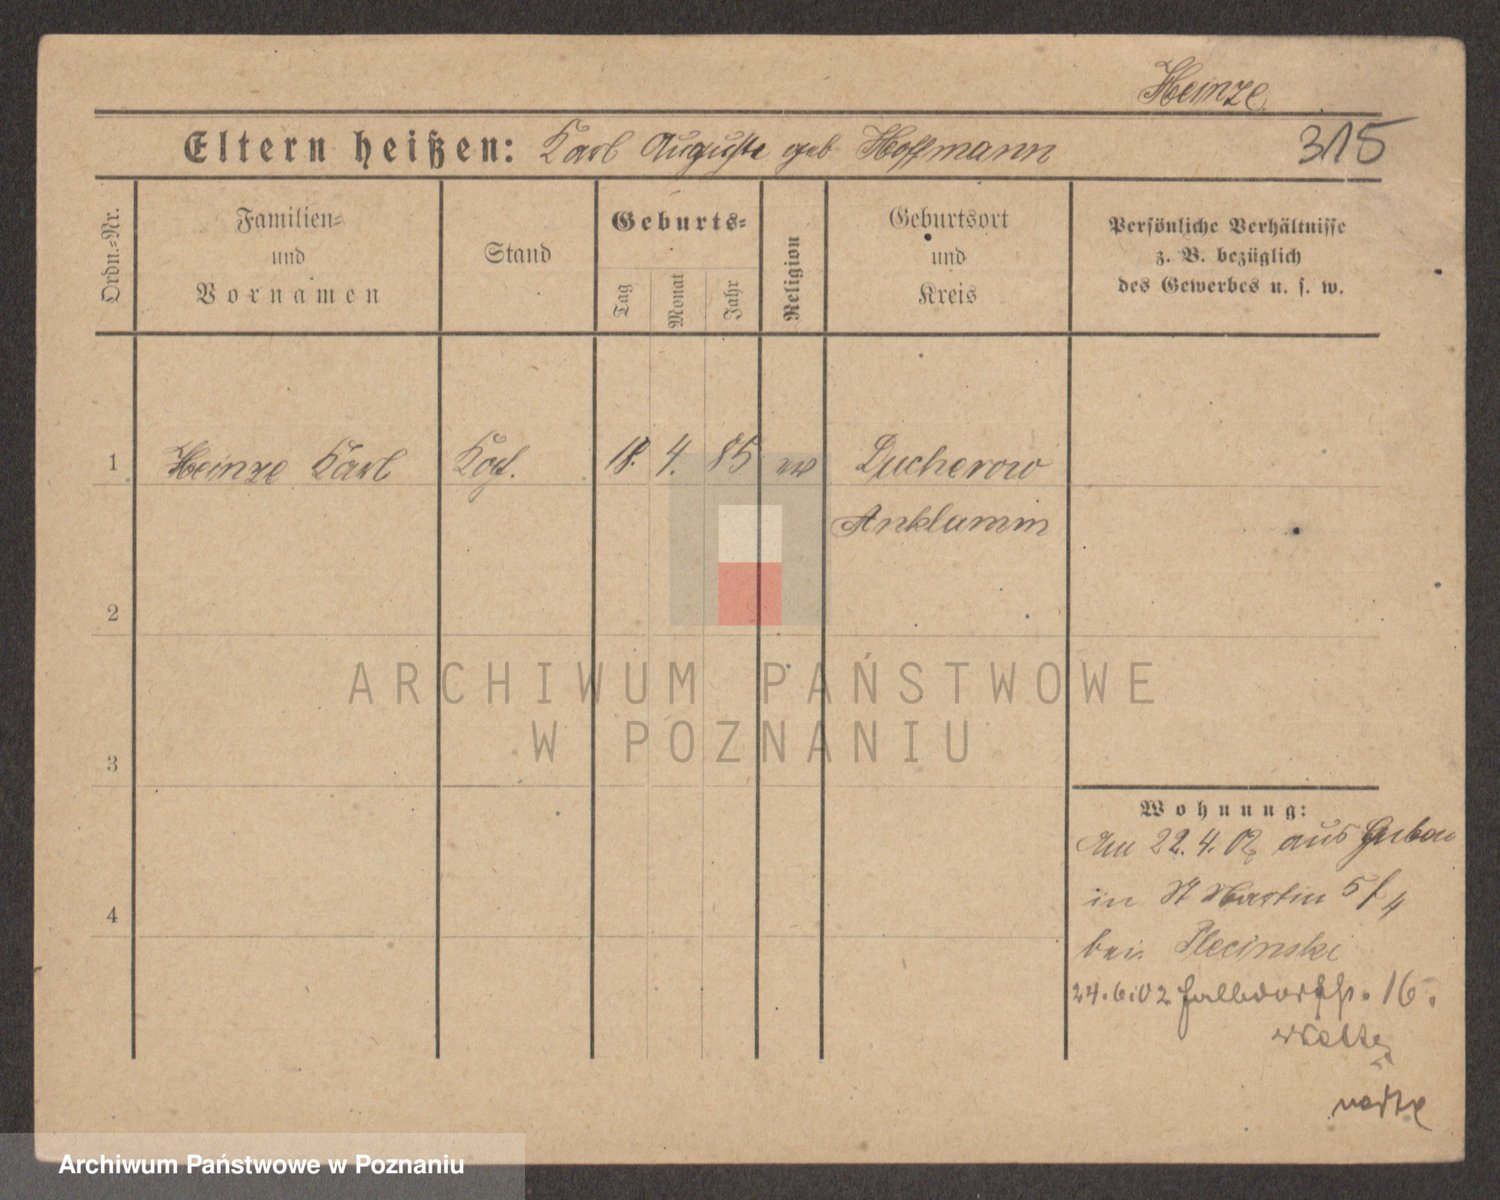 Heinze
Eltern heißen: Karl Auguste geb Hoffmann 315
Ordn.-Nr.
Familien-
und
Vornamen
Stand
Geburts-
Tag
Monat
Jahr
Religion
Geburtsort
und
Kreis
Persönliche Verhältnisse
z. B. bezüglich
des Gewerbes u. s. w.
1 Heinze Karl 18. 4. 85 ev Lucherow
Anklamm
2
3
4
Wohnung:
22.4.02 aus
in St Martin 5/4
bei Plecinski
24.6.02 16.
ARCHIWUM PAŃSTWOWE
W POZNANIU
Archiwum Państwowe w Poznaniu